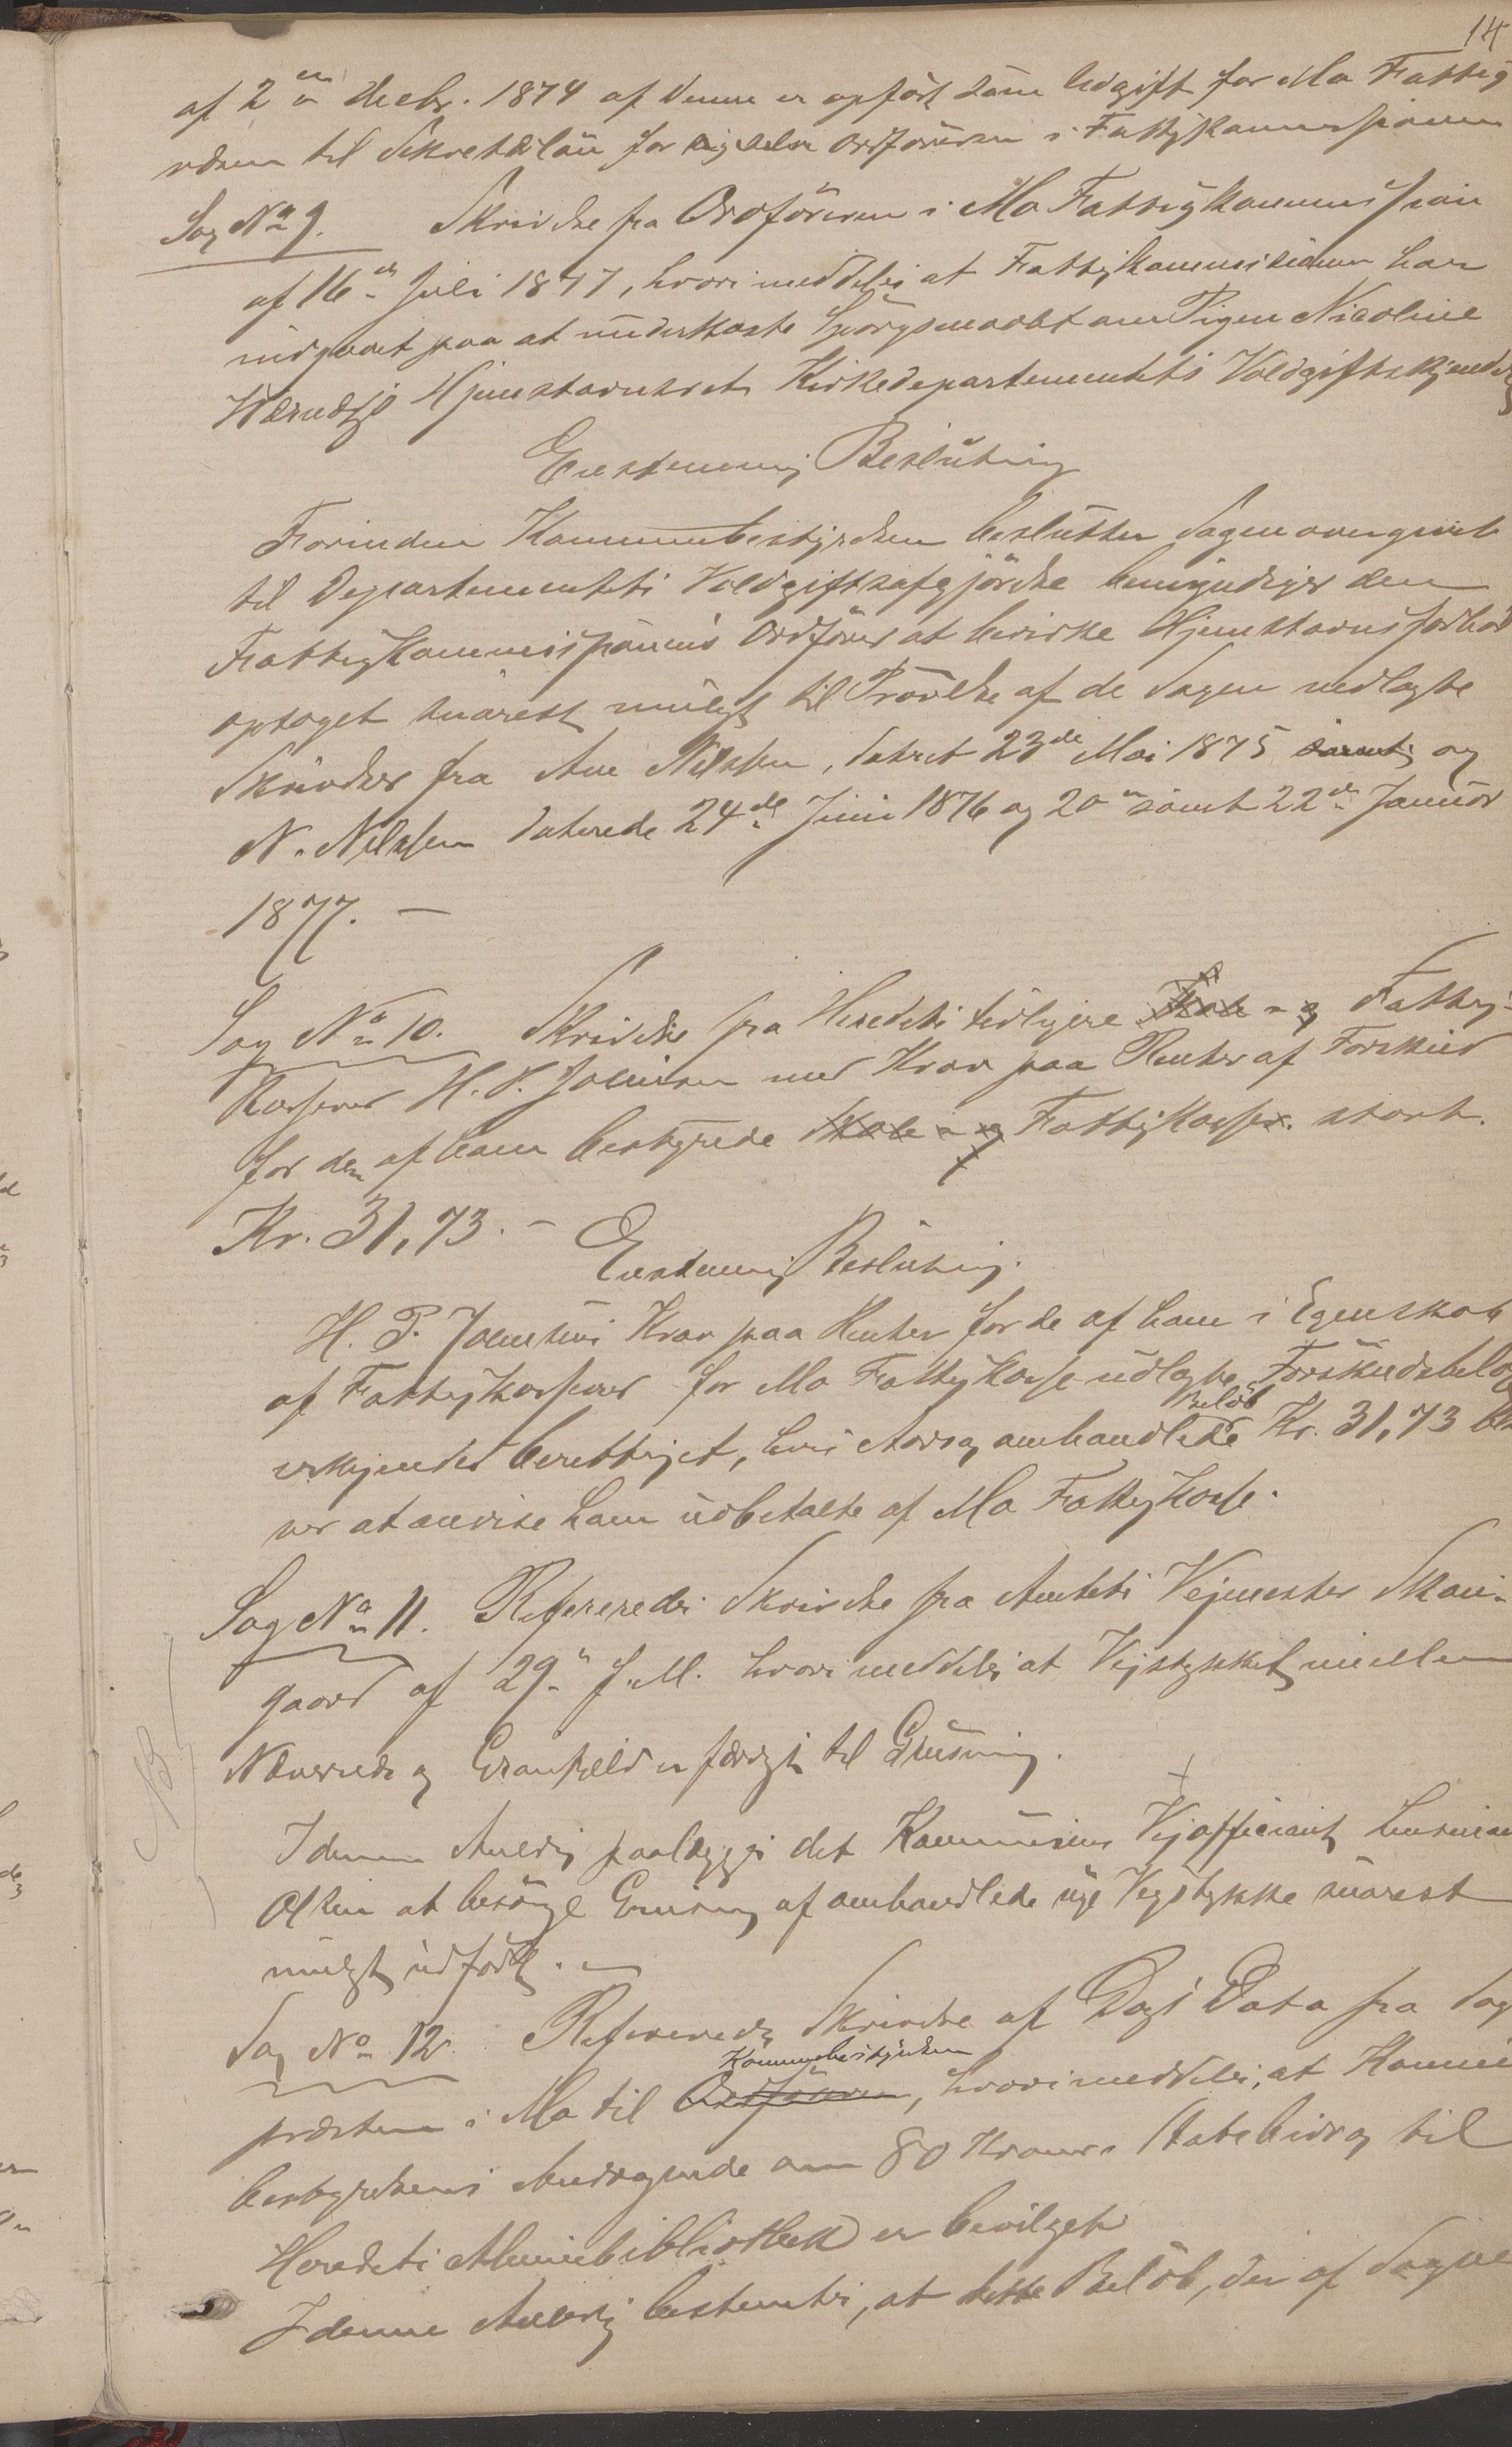 14
af 2den Decbr. 1874 af denne er opført som Udgift for Mo Fattig
væsen til Sekretærløn for Ordføreren i Fattigkommissionen
Sag No 9. Skrivelse fra Ordføreren i Mo Fattigkommission
af 16de Juli 1877, hvori meddeles at Fattigkommissionen har
indgaaet paa at underkaste Spørgsmaalet om Pigen Nicoline
Hjemstavnsret Kirkedepartementets Voldgiftskjendelse
Eenstemmig Beslutning
Forinden Kommunebestyrelsen beslutter Sagen overgivet
til Departementets Voldgiftsafgjørelse bemyndiges den
Fattigkommissionens Ordfører at bevirke Hjemstavnsforhør
optaget snarest muligt til Prøvelse af de Sagen vedlagte
Skrivelser fra Ane Nilssen, dateret 23de Mai 1875 samt og
N. Nilssen daterede 24de Juni 1876 og 20de samt 22de Januar
1877. —
Sag No 10. Skrivelse fra Heredets tidligere Skole- og Fattig-
kasserer H. P. Jolinsen med Krav paa Renter af Forskud
for den af ham bestyrede Skole- og Fattigkasse stort.
Kr. 31,73. — Eenstemmig Beslutning.
H. P. Krav paa Renter for de af ham i Egenskab
af Fattigkasserer for Mo Fattigkasse udlagte Forskudsbeløb
erkjendes berettiget, hvis Aarsag omhandlede Beløb Kr. 31,73 bli
ver at anvise ham udbetalte af Mo Fattigkasse.
Sag No 11. Refereredes Skrivelse fra Amtets Vejmester Skavi-
gaard af 29de f. M. hvori meddeles at Vejstykket mellem
Næverud og Granfjeld er færdigt til Grusning.
NB
I denne Anledng paalægges det Kommunens Vejofficiant
at besørge Grusning af omhandlede nye Vejstykke snarest
muligt udført. —
Sag No 12. Refereredes Skrivelse af Dags Dato fra Sogne
præsten i Mo til Ordføreren Kommunebestyrelsen, hvori meddeles, at Kommune
bestyrelsens Andragende om 80 Kroners Statsbidrag til
Heredets Almuebibliothek er bevilget
I denne Anledng bestemtes, at dette Beløb, der af Sogne